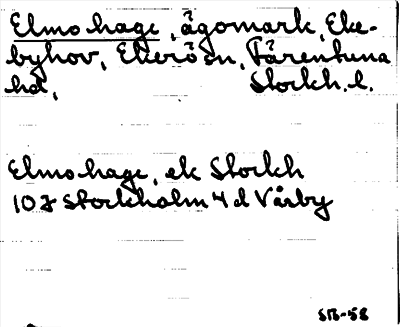 Elmo hage, ägomark, Eke-
byhov, Ekerö sn, Färentuna
hd, Stockh. l.
Elmo hage, ek Stockh
10 I Stockholm 4 d Vårby
SB-58